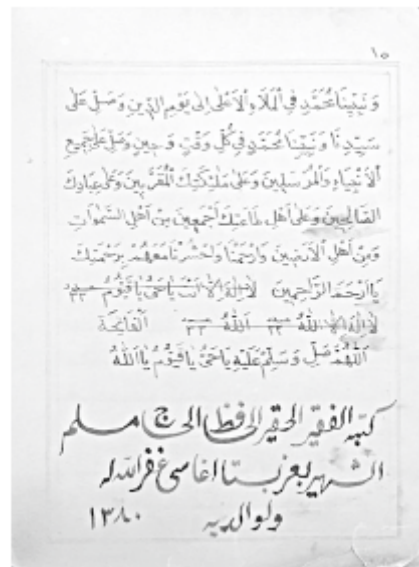 ١٥
وَنَبِيِّنَا مُحَمَّدٍ فِي الْمَلَاءِ الْاَعْلٰى اِلٰى يَوْمِ الدِّينِ وَصَلِّ عَلٰى
سَيِّدِنَا وَنَبِيِّنَا مُحَمَّدٍ فِي كُلِّ وَقْتٍ وَحِينٍ وَصَلِّ عَلٰى جَمِيعِ
الْاَنْبِيَاءِ وَالْمُرْسَلِينَ وَعَلٰى مَلٰئِكَتِكَ الْمُقَرَّبِينَ وَعَلٰى عِبَادِكَ
الصَّالِحِينَ وَعَلٰى اَهْلِ طَاعَتِكَ اَجْمَعِينَ مِنْ اَهْلِ السَّمٰوَاتِ
وَمِنْ اَهْلِ الْاَرَضِينَ وَارْحَمْنَا وَاحْشُرْنَا مَعَهُمْ بِرَحْمَتِكَ
يَا اَرْحَمَ الرَّاحِمِينَ لَا اِلٰهَ اِلَّا اَنْتَ يَا حَيُّ يَا قَيُّومُ ٣٣
لَا اِلٰهَ اِلَّا اللّٰهُ ٣٣ اَللّٰهُ ٣٣ اَلْفَاتِحَة
اَللّٰهُمَّ صَلِّ وَسَلِّمْ عَلَيْهِ يَا حَيُّ يَا قَيُّومُ يَا اَللّٰهُ
كتبه الفقير الحقير الحافظ الحاج مسلم
الشهير بعربستا اغاسى غفر الله له
ولوالديه ١٣٨٠